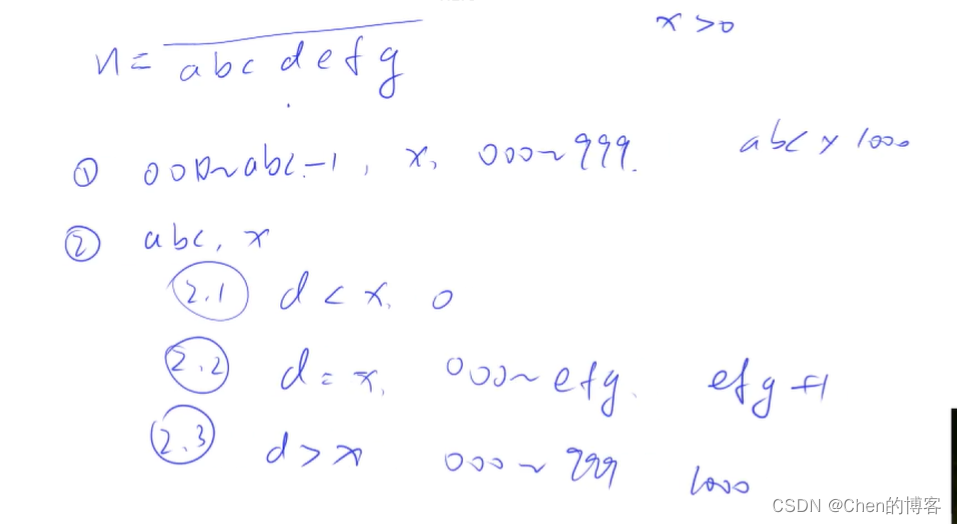 n = abcdefg x>0
① 000~abc-1, x, 000~999. abc × 1000
② abc, x
2.1 d < x, 0
2.2 d = x, 000~efg. efg+1
2.3 d > x 000~999 1000
CSDN @Chen的博客